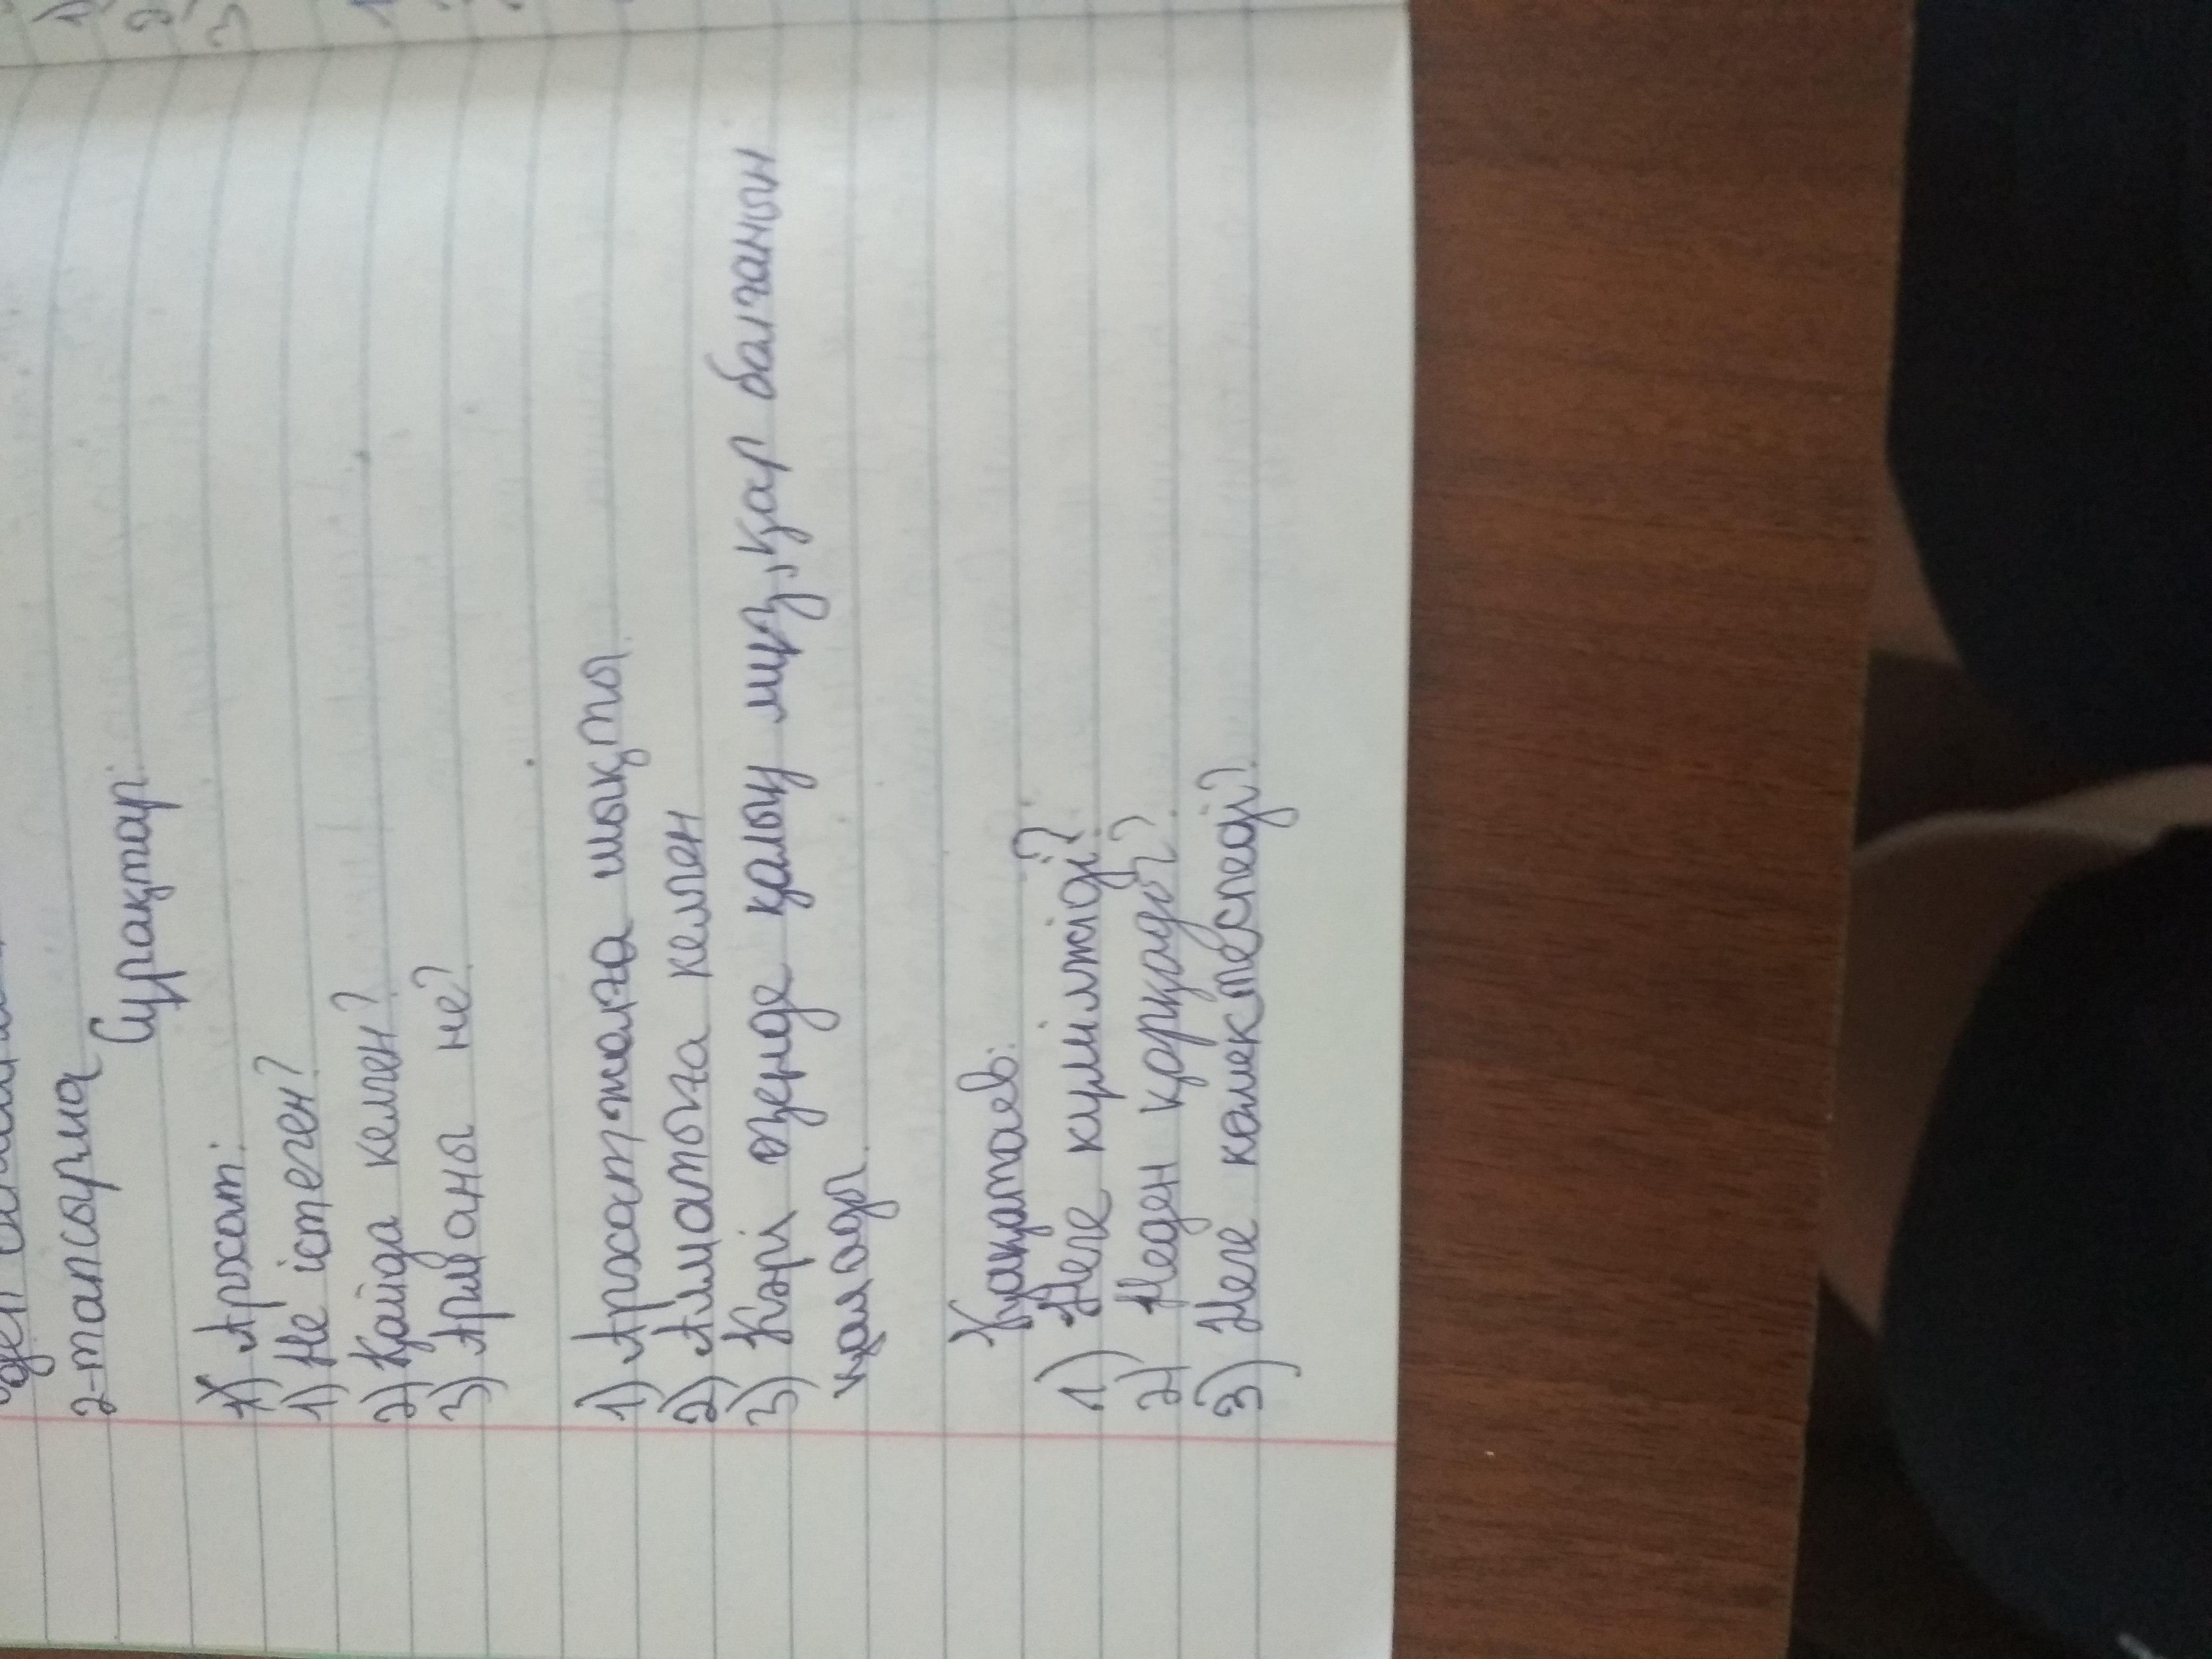 2-тапсырма
Сұрақтар:
Архат:
1) Не істеген?
2) Қайда келген?
3) Арманы не?
1) Архат жолға шықты
2) Алматыға келген
3) Кәрі әңгенде қалыу мұз, қар болғанын
қалады.
Қанатаев:
1) Неге күрілжіді?
2) Неден қорқады?
3) Неге көмектеспеді?